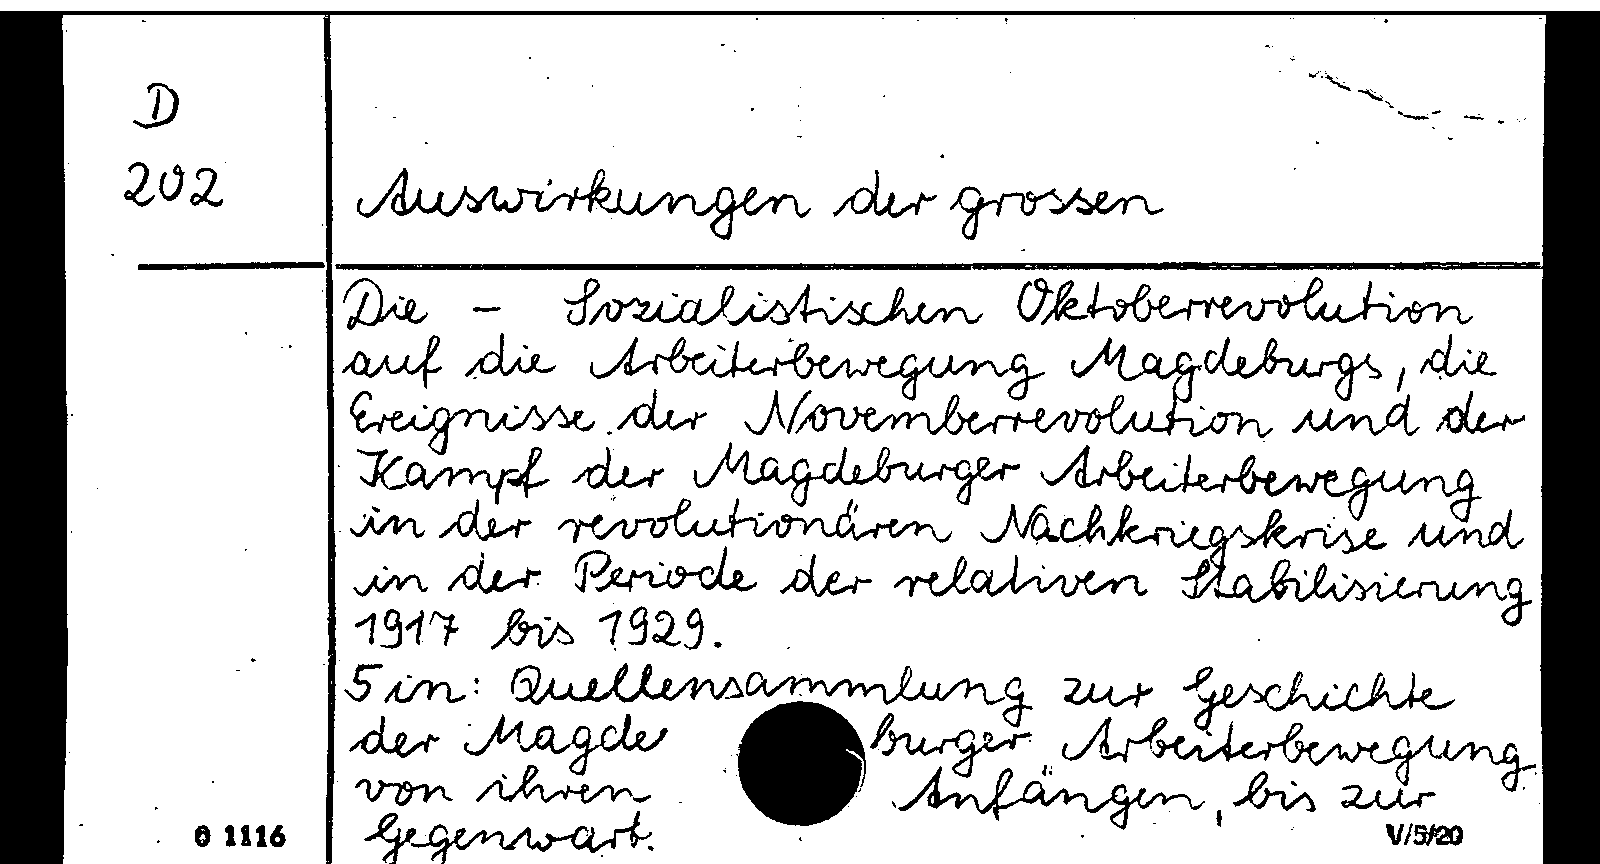 D
202
Auswirkungen der grossen
Die - Sozialistischen Oktoberrevolution
auf die Arbeiterbewegung Magdeburgs, die
Ereignisse der Novemberrevolution und der
Kampf der Magdeburger Arbeiterbewegung
in der revolutionären Nachkriegskrise und
in der Periode der relativen Stabilisierung
1917 bis 1929.
5 in: Quellensammlung zur Geschichte
der Magde burger Arbeiterbewegung
von ihren Anfängen, bis zur
Gegenwart.
Θ 1116
V/5/20